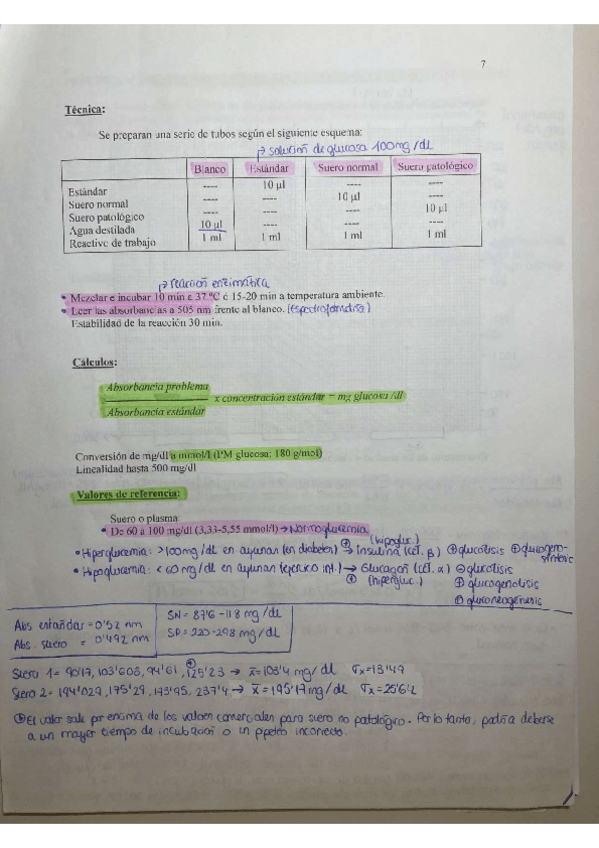 7
Técnica:
Se preparan una serie de tubos según el siguiente esquema:
↳ solución de glucosa 100mg/dl
Blanco Estándar Suero normal Suero patológico
Estándar ---- 10 µl ---- ----
Suero normal ---- ---- 10 µl ----
Suero patológico ---- ---- ---- 10 µl
Agua destilada 10 µl ---- ---- ----
Reactivo de trabajo 1 ml 1 ml 1 ml 1 ml
↳ reacción enzimática
• Mezclar e incubar 10 min a 37 ºC ó 15-20 min a temperatura ambiente.
• Leer las absorbancias a 505 nm frente al blanco. (espectrofotometría)
Estabilidad de la reacción 30 min.
Cálculos:
Absorbancia problema
x concentración estándar = mg glucosa /dl
Absorbancia estándar
Conversión de mg/dl a mmol/l (PM glucosa: 180 g/mol)
Linealidad hasta 500 mg/dl
Valores de referencia:
Suero o plasma:
• De 60 a 100 mg/dl (3,33-5,55 mmol/l) → Normoglucemia
⊕ (hipogluc.)
• Hiperglucemia: >100mg/dl en ayunas (en diabetes) → insulina (cél. β) ⊕ glucolisis ⊕ glucogenosíntesis
• Hipoglucemia: < 60 mg/dl en ayunas → Glucagón (cél. α) ⊖ glucolisis
⊕ (hipergluc.) ⊕ glucogenolisis
⊕ gluconeogénesis
Abs estándar = 0'52 nm
Abs. suero = 0'492 nm
SN = 87'6 - 118 mg/dL
SP = 220-298 mg/dL
Suero 1 = 90'17, 103'605, 94'61, 125'23 → x̄ = 103'4 mg/dl σx = 13'49
Suero 2 = 194'029, 175'29, 173'95, 237'4 → x̄ = 195'17 mg/dl σx = 25'6/2
⊕ El valor sale por encima de los valores comerciales para suero no patológico. Por lo tanto, podría deberse
a un mayor tiempo de incubación o un pipeteo incorrecto.